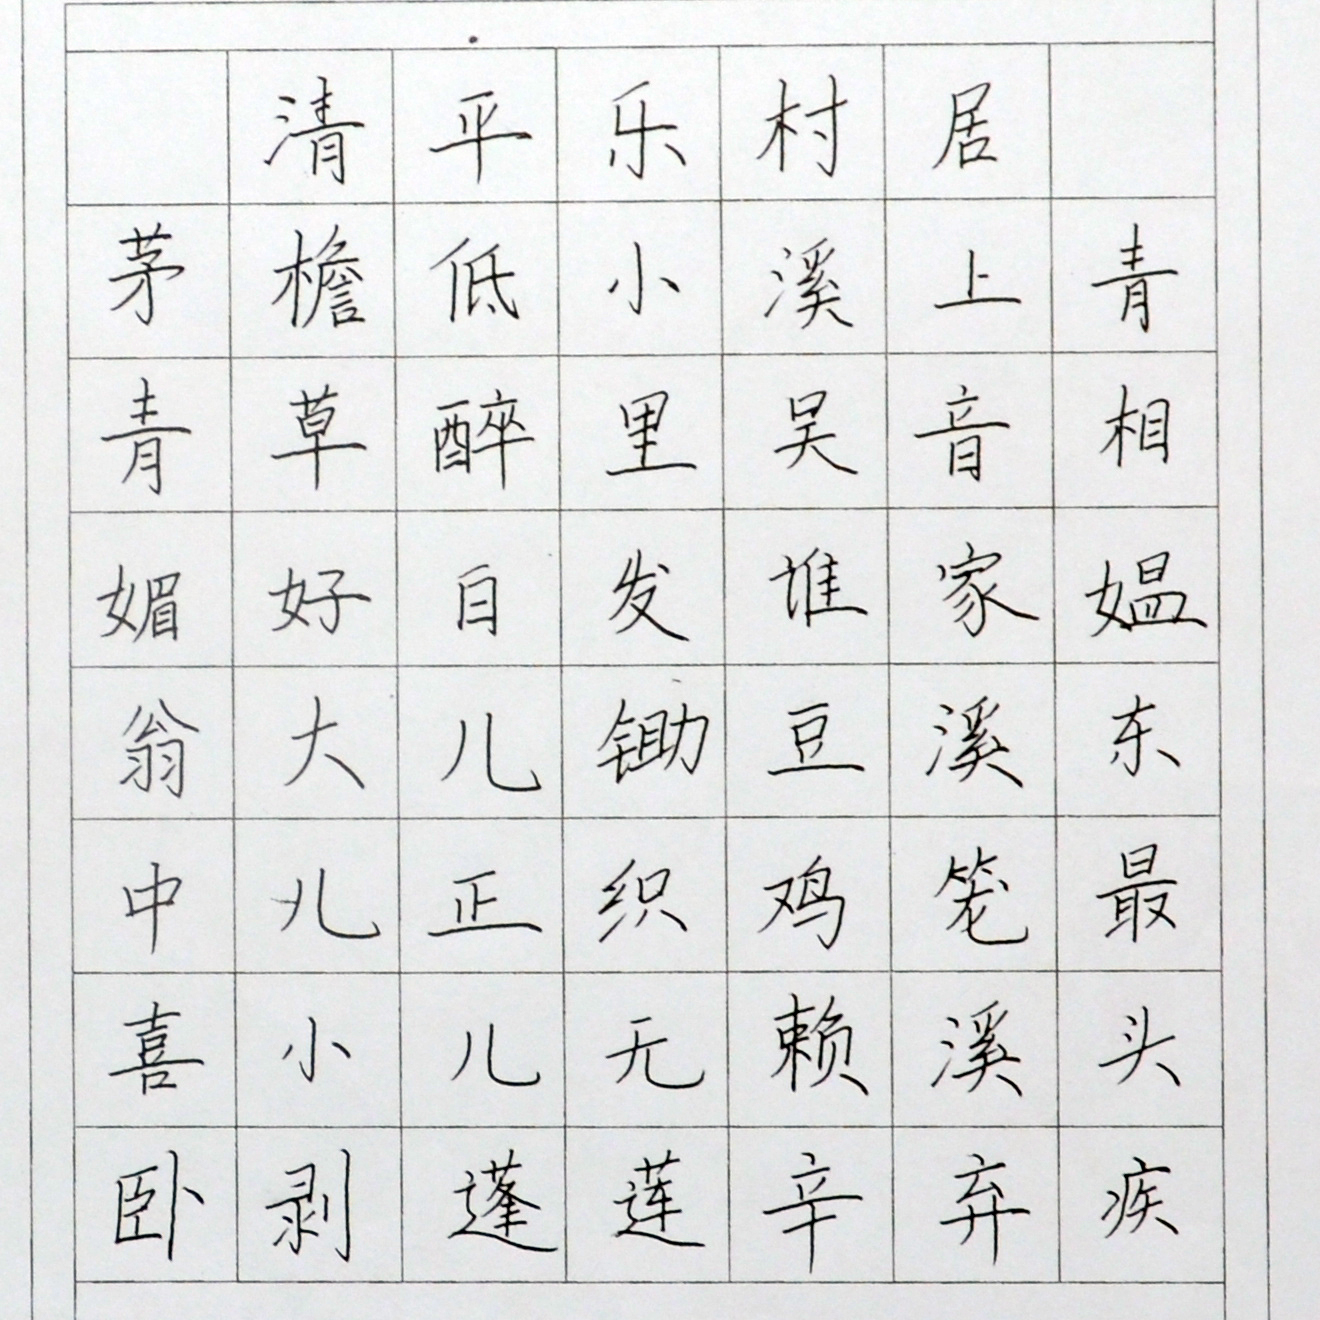 清平乐村居
茅檐低小溪上青
青草醉里吴音相
媚好白发谁家媪
翁大儿锄豆溪东
中儿正织鸡笼最
喜小儿无赖溪头
卧剥蓬莲辛弃疾